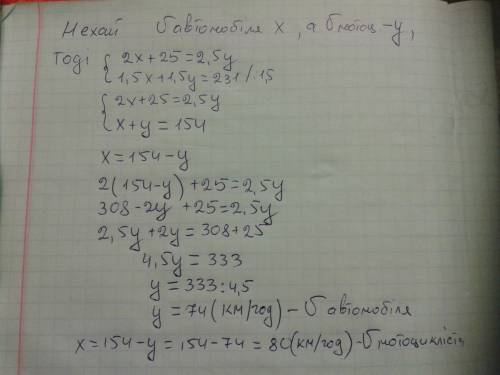 Нехай υ автомобіля x, а υ мотоц - y,
Тоді { 2x + 25 = 2,5y
1,5x + 1,5y = 231 / : 1,5
{ 2x + 25 = 2,5y
x + y = 154
x = 154 - y
2(154 - y) + 25 = 2,5y
308 - 2y + 25 = 2,5y
2,5y + 2y = 308 + 25
4,5y = 333
y = 333 : 4,5
y = 74 (км/год) - υ автомобіля
x = 154 - y = 154 - 74 = 80 (км/год) - υ мотоцикліста